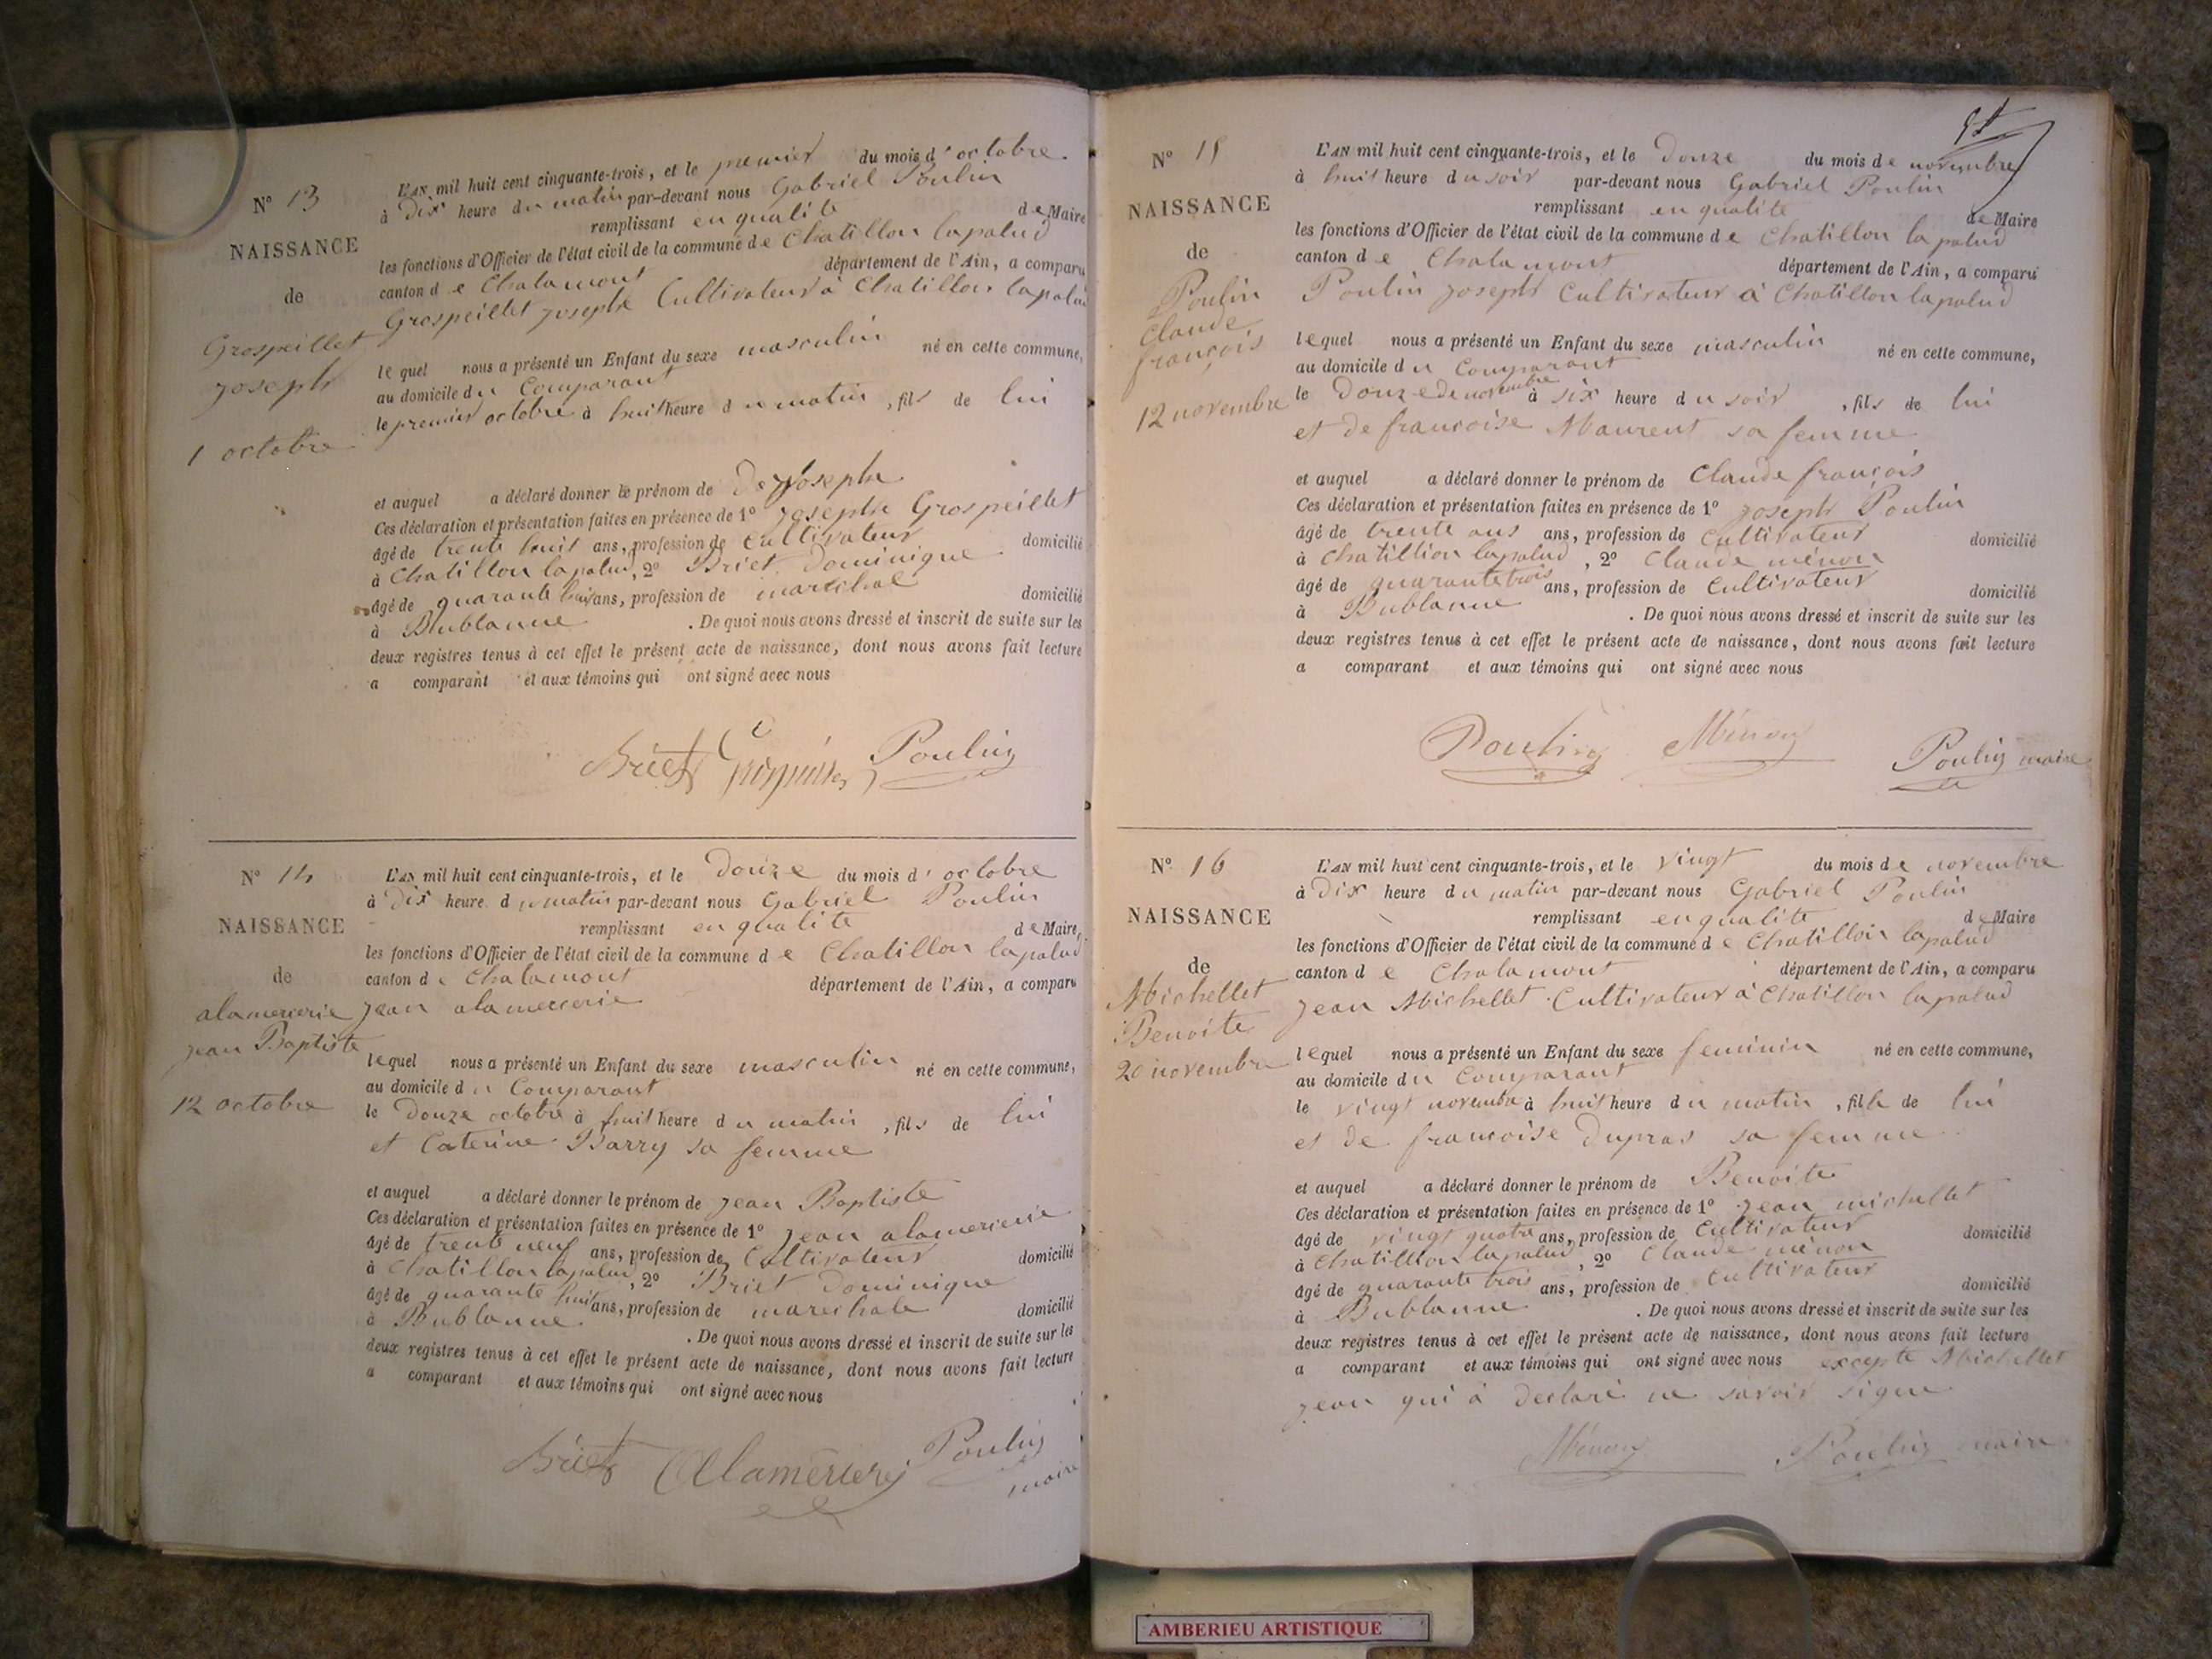 N° 13
NAISSANCE
de
Grospeillet
joseph
1 octobre
L'AN mil huit cent cinquante-trois, et le premier du mois d'octobre
à Dix heure du matin par-devant nous Gabriel Poulin
remplissant en qualité de Maire
les fonctions d'Officier de l'état civil de la commune de Chatillon lapalud
canton de Chalamont département de l'Ain, a comparu
Grospeillet joseph Cultivateur à Chatillon lapalud
lequel nous a présenté un Enfant du sexe masculin né en cette commune,
au domicile du Comparant
le premier octobre à huit heure du matin, fils de lui
et auquel a déclaré donner le prénom de joseph
Ces déclaration et présentation faites en présence de 1° joseph Grospeillet
âgé de trente huit ans, profession de Cultivateur domicilié
à Chatillon lapalud, 2° Briet Dominique
âgé de quarante huit ans, profession de maréchal domicilié
à Bublanne. De quoi nous avons dressé et inscrit de suite sur les
deux registres tenus à cet effet le présent acte de naissance, dont nous avons fait lecture
a comparant et aux témoins qui ont signé avec nous
Briet Poulin
N° 14
NAISSANCE
de
alamercerie
jean Baptiste
12 octobre
L'AN mil huit cent cinquante-trois, et le Douze du mois d'octobre
à Dix heure du matin par-devant nous Gabriel Poulin
remplissant en qualité de Maire,
les fonctions d'Officier de l'état civil de la commune de Chatillon lapalud
canton de Chalamont département de l'Ain, a comparu
jean alamercerie
lequel nous a présenté un Enfant du sexe masculin né en cette commune,
au domicile du Comparant
le Douze octobre à huit heure du matin, fils de lui
et Caterine Barry sa femme
et auquel a déclaré donner le prénom de jean Baptiste
Ces déclaration et présentation faites en présence de 1° jean alamercerie
âgé de trente neuf ans, profession de Cultivateur domicilié
à Chatillon lapalud, 2° Briet Dominique
âgé de quarante huit ans, profession de marechale domicilié
à Bublanne. De quoi nous avons dressé et inscrit de suite sur les
deux registres tenus à cet effet le présent acte de naissance, dont nous avons fait lecture
a comparant et aux témoins qui ont signé avec nous
Briet Poulin
maire
N° 15
NAISSANCE
de
Poulin
Claude
françois
12 novembre
L'AN mil huit cent cinquante-trois, et le Douze du mois de novembre
à huit heure du soir par-devant nous Gabriel Poulin
remplissant en qualité de Maire
les fonctions d'Officier de l'état civil de la commune de Chatillon lapalud
canton de Chalamont département de l'Ain, a comparu
Poulin joseph Cultivateur à Chatillon lapalud
lequel nous a présenté un Enfant du sexe masculin né en cette commune,
au domicile du Comparant
le Douze de novembre à six heure du soir, fils de lui
et de françoise Maurent sa femme
et auquel a déclaré donner le prénom de Claude françois
Ces déclaration et présentation faites en présence de 1° joseph Poulin
âgé de trente ans ans, profession de Cultivateur domicilié
à Chatillion lapalud, 2° Claude ménon
âgé de quarante trois ans, profession de Cultivateur domicilié
à Bublanne. De quoi nous avons dressé et inscrit de suite sur les
deux registres tenus à cet effet le présent acte de naissance, dont nous avons fait lecture
a comparant et aux témoins qui ont signé avec nous
Poulin Ménon Poulin maire
N° 16
NAISSANCE
de
Michellet
Benoite
20 novembre
L'AN mil huit cent cinquante-trois, et le vingt du mois de novembre
à Dix heure du matin par-devant nous Gabriel Poulin
remplissant en qualité de Maire
les fonctions d'Officier de l'état civil de la commune de Chatillon lapalud
canton de Chalamont département de l'Ain, a comparu
jean Michellet Cultivateur à Chatillon lapalud
lequel nous a présenté un Enfant du sexe feminin né en cette commune,
au domicile du Comparant
le vingt novembre à huit heure du matin, fille de lui
et de francoise Dupras sa femme
et auquel a déclaré donner le prénom de Benoite
Ces déclaration et présentation faites en présence de 1° jean michellet
âgé de vingt quatre ans, profession de Cultivateur domicilié
à Chatillion lapalud, 2° Claude ménon
âgé de quarante trois ans, profession de Cultivateur domicilié
à Bublanne. De quoi nous avons dressé et inscrit de suite sur les
deux registres tenus à cet effet le présent acte de naissance, dont nous avons fait lecture
a comparant et aux témoins qui ont signé avec nous excepte Michellet
jean qui à declaré ne savoir signe
Ménon Poulin maire
AMBERIEU ARTISTIQUE